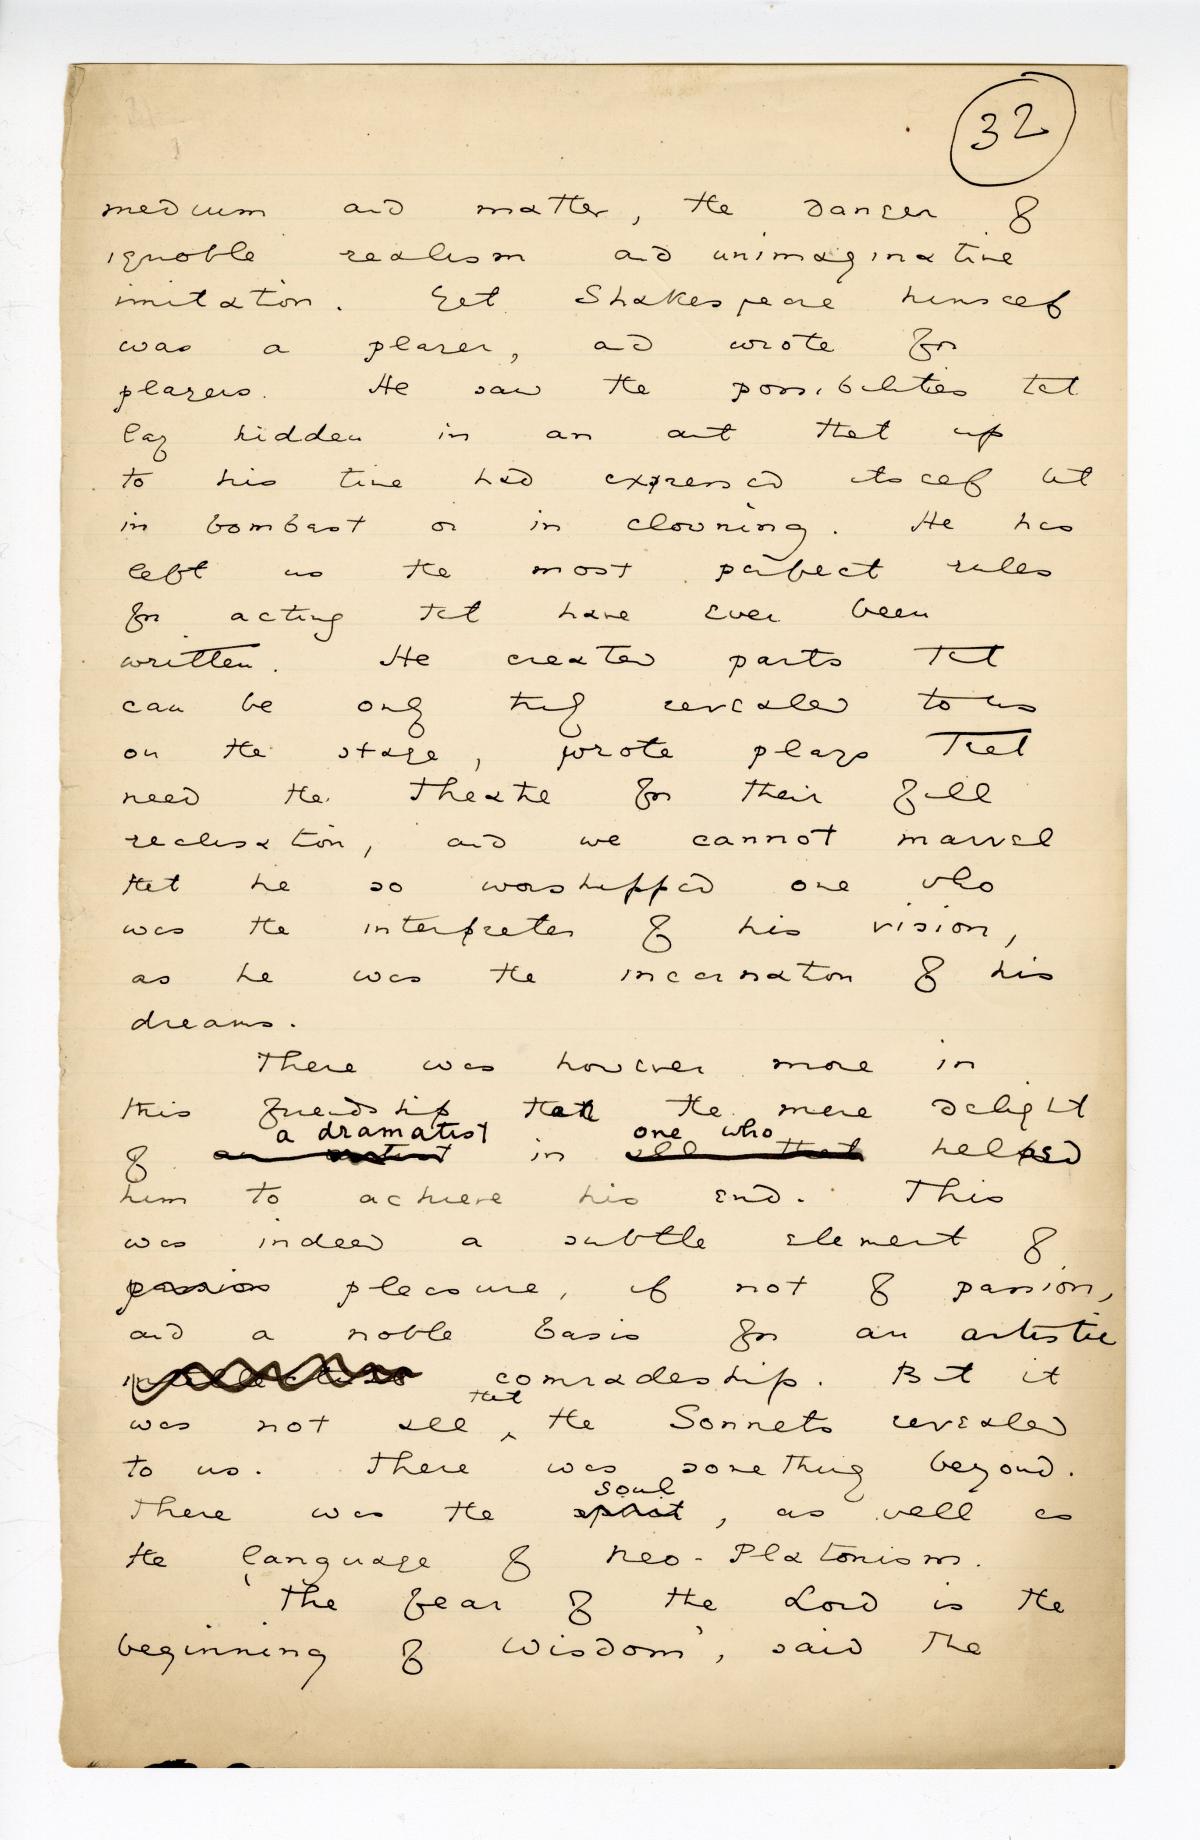 32
medium and matter, the danger of
ignoble realism and unimaginative
imitation. Yet Shakespeare himself
was a player, and wrote for
players. He saw the possibilities that
lay hidden in an art that up
to his time had expressed itself but
in bombast or in clowning. He has
left us the most perfect rules
for acting that have ever been
written. He created parts that
can be only truly revealed to us
on the stage, wrote plays that
need the theatre for their full
realisation, and we cannot marvel
that he so worshipped one who
was the interpreter of his vision,
as he was the incarnation of his
dreams.
There was however more in
this friendship than the mere delight
a dramatist one who
of an artist in all that helped
him to achieve his end. This
was indeed a subtle element of
passion pleasure, if not of passion,
and a noble basis for an artistic
comradeship. But it
that
was not all ^ the Sonnets revealed
to us. There was something beyond.
soul
There was the spirit, as well as
the language of Neo-Platonism.
'The fear of the Lord is the
beginning of Wisdom', said the